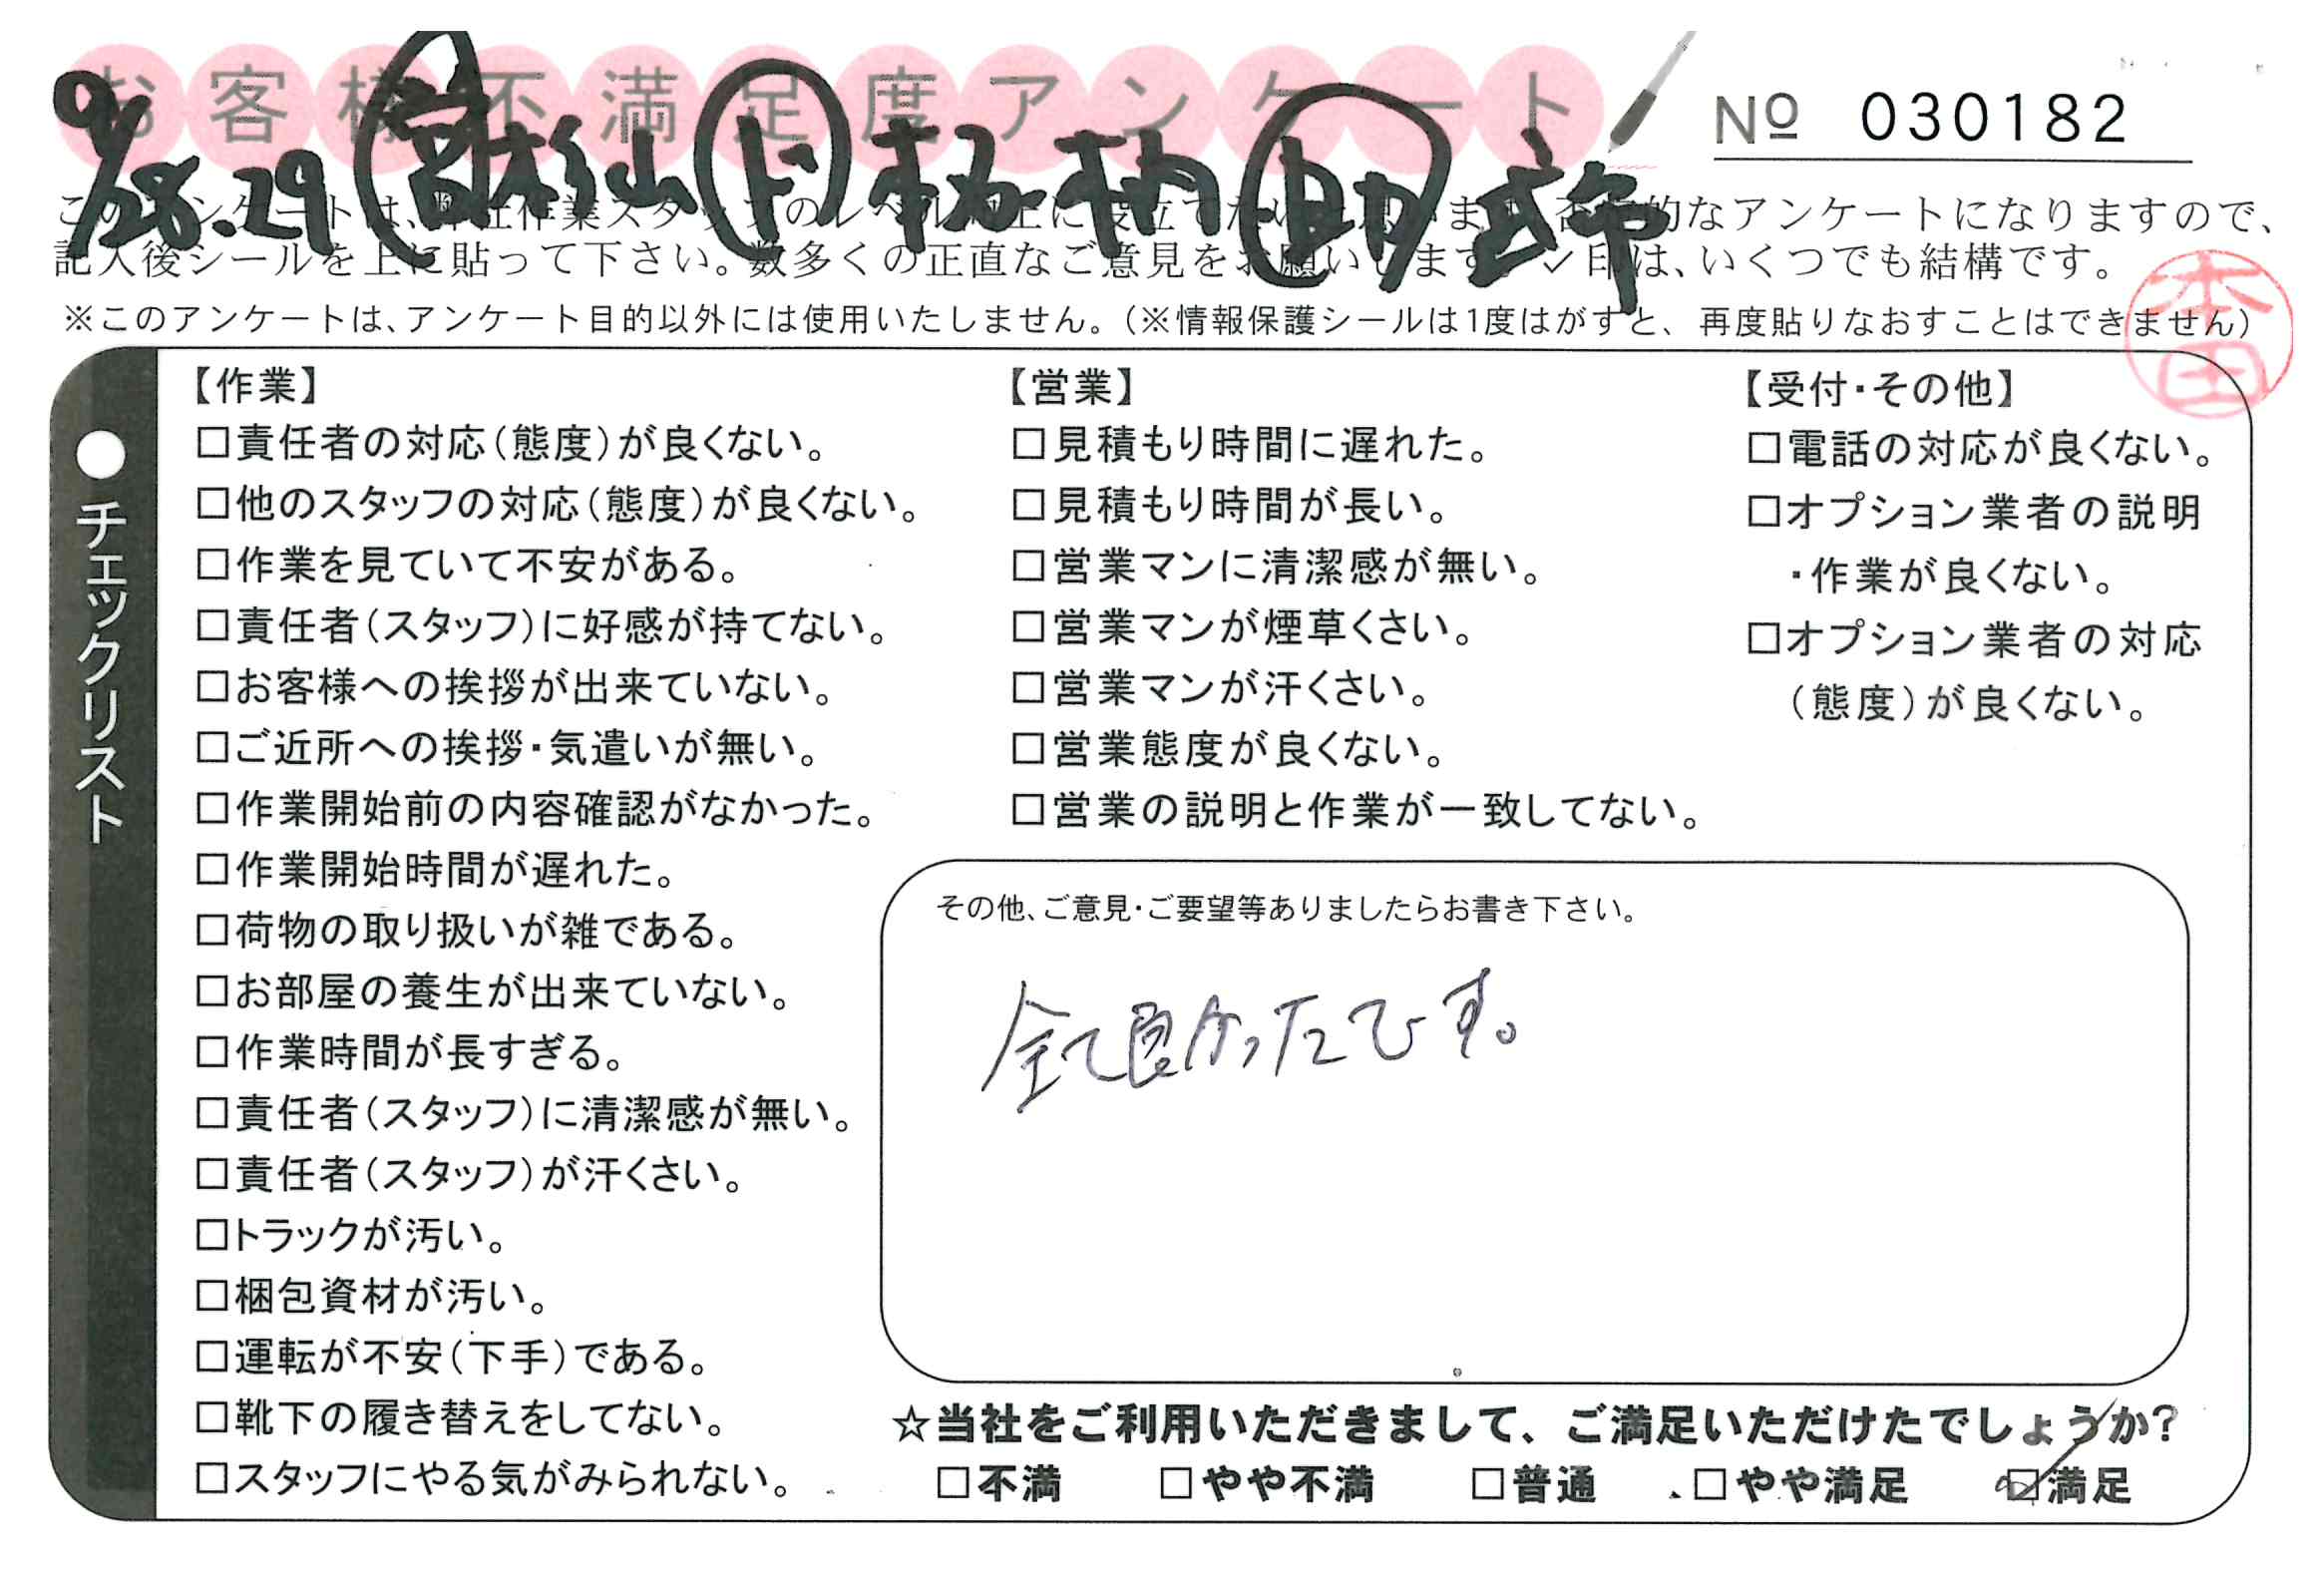 お客様不満足度アンケート
№ 030182
9/28.29
このアンケートは、弊社作業スタッフのレベル向上に役立てたいと思います。否定的なアンケートになりますので、
記入後シールを上に貼って下さい。数多くの正直なご意見をお願いします。✓印は、いくつでも結構です。
※このアンケートは、アンケート目的以外には使用いたしません。（※情報保護シールは1度はがすと、再度貼りなおすことはできません）
本田
●チェックリスト
【作業】
□責任者の対応（態度）が良くない。
□他のスタッフの対応（態度）が良くない。
□作業を見ていて不安がある。
□責任者（スタッフ）に好感が持てない。
□お客様への挨拶が出来ていない。
□ご近所への挨拶・気遣いが無い。
□作業開始前の内容確認がなかった。
□作業開始時間が遅れた。
□荷物の取り扱いが雑である。
□お部屋の養生が出来ていない。
□作業時間が長すぎる。
□責任者（スタッフ）に清潔感が無い。
□責任者（スタッフ）が汗くさい。
□トラックが汚い。
□梱包資材が汚い。
□運転が不安（下手）である。
□靴下の履き替えをしてない。
□スタッフにやる気がみられない。
【営業】
□見積もり時間に遅れた。
□見積もり時間が長い。
□営業マンに清潔感が無い。
□営業マンが煙草くさい。
□営業マンが汗くさい。
□営業態度が良くない。
□営業の説明と作業が一致してない。
【受付・その他】
□電話の対応が良くない。
□オプション業者の説明
・作業が良くない。
□オプション業者の対応
（態度）が良くない。
その他、ご意見・ご要望等ありましたらお書き下さい。
全て良かったです。
☆当社をご利用いただきまして、ご満足いただけたでしょうか？
□不満 □やや不満 □普通 □やや満足 ☑満足